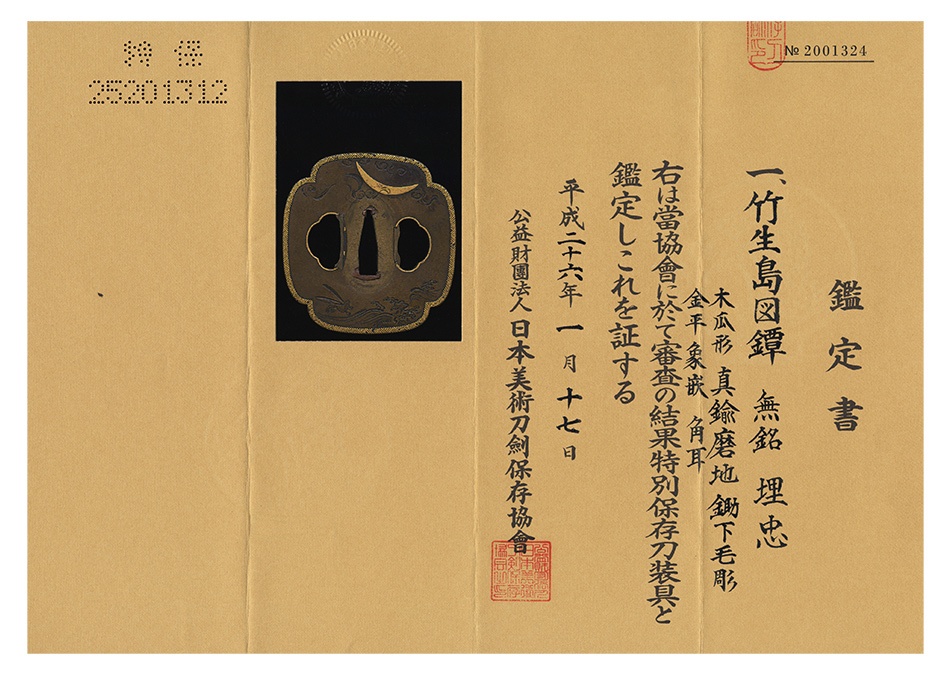 特 保
25201312
№ 2001324
鑑定書
一、竹生島図鐔 無銘 埋忠
木瓜形 真鍮磨地 鋤下毛彫
金平象嵌 角耳
右は當協會に於て審査の結果特別保存刀装具と
鑑定しこれを証する
平成二十六年一月十七日
公益財團法人日本美術刀劍保存協會